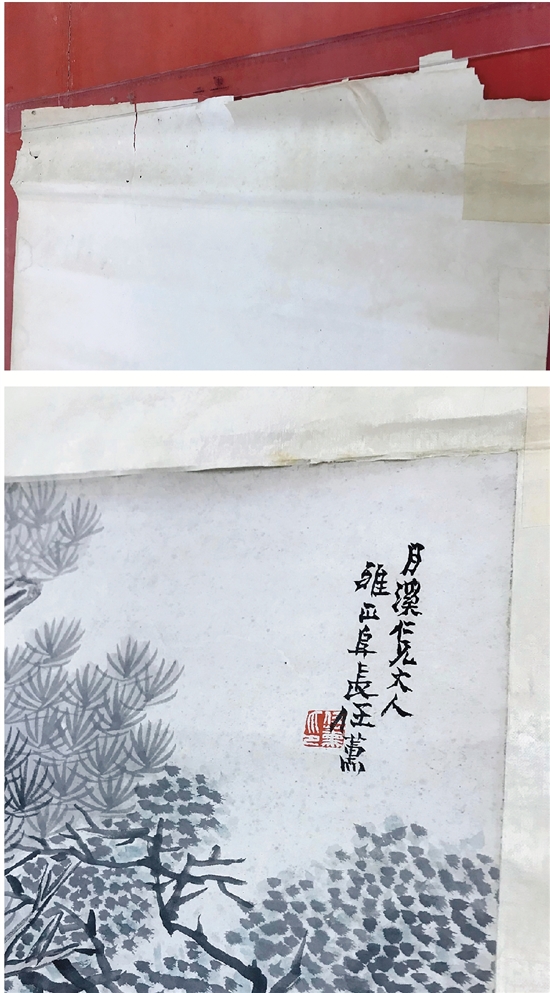 月溪仁兄大人
雅正阜長任薰